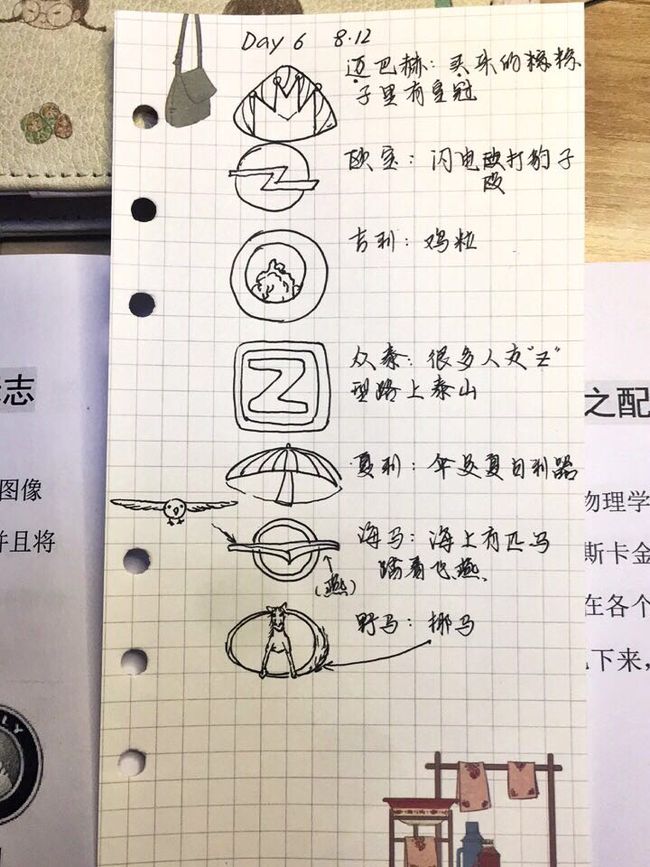 Day 6 8.12
迈巴赫：买来的粽粽
子里有皇冠
欧宝：闪电殴打豹子
殴
吉利：鸡粒
Z
众泰：很多人走“Z”
型路上泰山
夏利：伞是夏日利器
海马：海上有匹马
踏着飞燕
(燕)
野马：椰马
志
图像
并且将
LY
之配
物理学
斯卡金
在各个
下来，